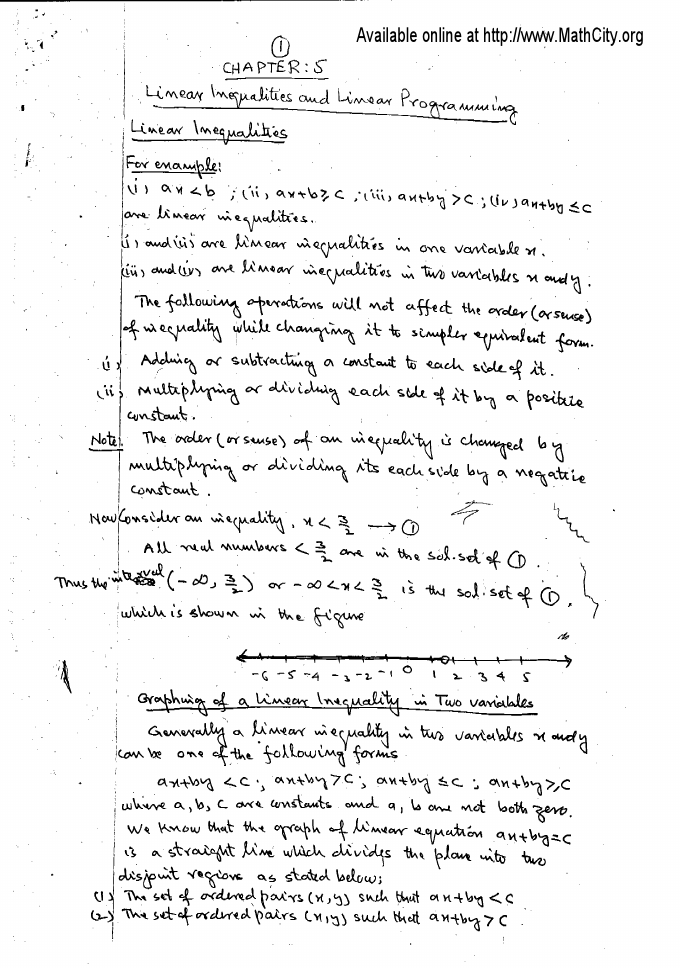 Available online at http://www.MathCity.org
①
CHAPTER: 5
Linear Inequalities and Linear Programming
Linear Inequalities
For example:
(i) ax < b ; (ii) ax+b ≥ c ; (iii) ax+by > c ; (iv) ax+by ≤ c
are linear inequalities.
(i) and (ii) are linear inequalities in one variable x.
(iii) and (iv) are linear inequalities in two variables x and y.
The following operations will not affect the order (or sense)
of inequality while changing it to simpler equivalent form.
(i) Adding or subtracting a constant to each side of it.
(ii) Multiplying or dividing each side of it by a positive
constant.
Note: The order (or sense) of an inequality is changed by
multiplying or dividing its each side by a negative
constant.
Now Consider an inequality, x < 3/2 → ①
All real numbers < 3/2 are in the sol. set of ①.
Thus the interval (-∞, 3/2) or -∞ < x < 3/2 is the sol. set of ①,
which is shown in the figure
-6 -5 -4 -3 -2 -1 0 1 2 3 4 5
Graphing of a Linear Inequality in Two variables
Generally a linear inequality in two variables x and y
can be one of the following forms
ax+by < c ; ax+by > c ; ax+by ≤ c ; ax+by ≥ c
where a, b, c are constants and a, b are not both zero.
We know that the graph of linear equation ax+by=c
is a straight line which divides the plane into two
disjoint regions as stated below;
(1) The set of ordered pairs (x,y) such that ax+by < c
(2) The set of ordered pairs (x,y) such that ax+by > c